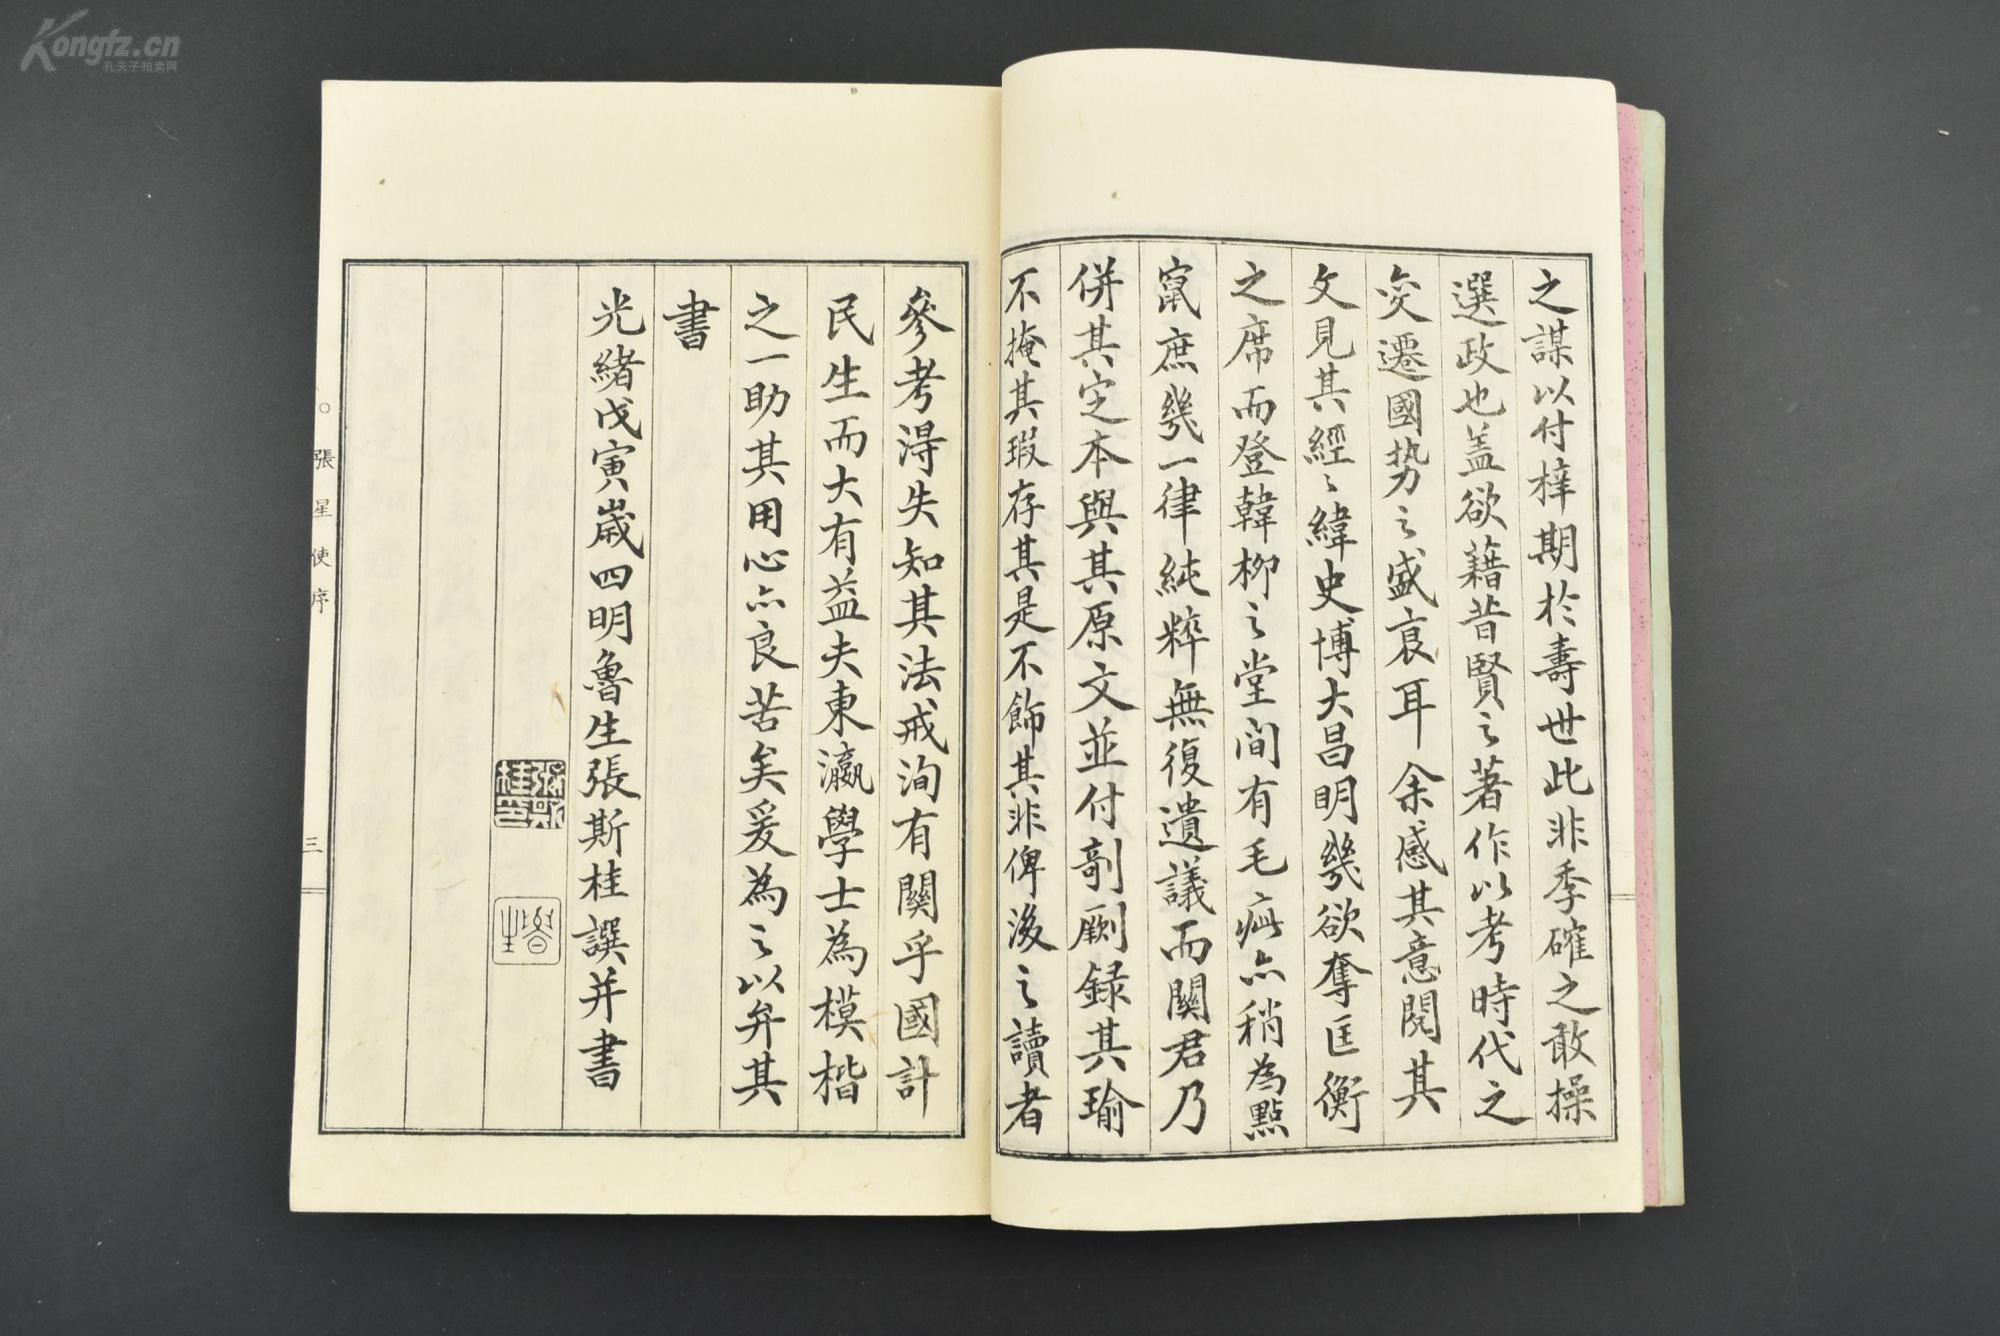 Kongfz.cn
孔夫子拍卖网
之謀以付梓期於壽世此非季確之敢操
選政也盖欲藉昔賢之著作以考時代之
变遷國势之盛衰耳余感其意閱其
文見其經〻緯史博大昌明幾欲奪匡衡
之席而登韓柳之堂间有毛疵亦稍為點
竄庶幾一律純粹無復遺議而關君乃
併其定本與其原文並付剞劂録其瑜
不掩其瑕存其是不飾其非俾後之讀者
參考得失知其法戒洵有關乎國計
民生而大有益夫東瀛學士為模楷
之一助其用心亦良苦矣爰為之以弁其
書
光緒戊寅歲四明魯生張斯桂譔并書
張斯桂印
魯生
○張星使序
三